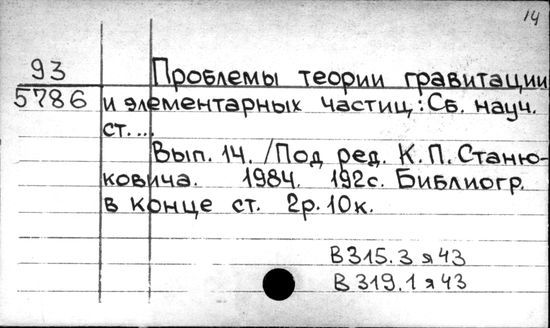 14
93
5786
Проблемы теории гравитации
и элементарных частиц: Сб. науч.
ст. ...
Вып. 14. /Под ред. К.П. Станю-
ковича. 1984. 192с. Библиогр.
в конце ст. 2р. 10к.
В315.3я43
В319.1я43